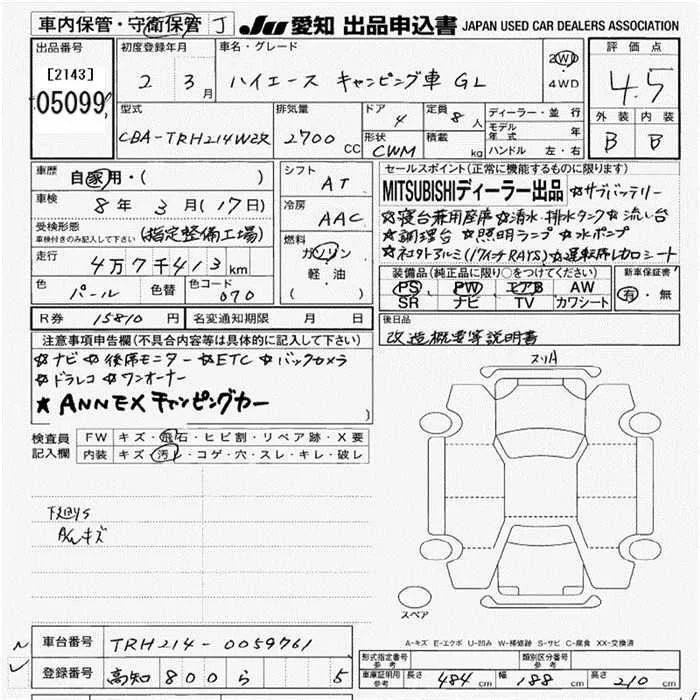 車内保管・守衛保管 J JU 愛知 出品申込書 JAPAN USED CAR DEALERS ASSOCIATION
出品番号 初度登録年月 車名・グレード 評価点
[2143] 2 3月 ハイエース キャンピング車 GL 2WD・4WD 4.5
05099
型式 排気量 ドア 定員 ディーラー・並行 外装 内装
CBA-TRH214W改 2700CC 4 8人 モデル年式 年 B B
形状 積載 ハンドル 左・右
CWM kg
車歴 自家用・( ) シフト AT セールスポイント(正常に機能するものに限ります)
MITSUBISHIディーラー出品 ☆サブバッテリー
車検 8年 3月(17日) 冷房 AAC ☆寝台兼用座席 ☆清水・排水タンク ☆流し台
受検形態 車検付きのみ記入して下さい (指定整備工場) ☆調理台 ☆照明ランプ ☆水ポンプ
走行 4万7千413km 燃料 ガソリン 軽油 ( )
☆社外アルミ(17インチRAYS) ☆運転席レカロシート
装備品(純正品に限り○をつけてください) 新車保証書
色 パール 色替 色コード 070 PS PW エアB AW 有・無
SR ナビ TV カワシート
R券 15810円 名変通知期限 月 日 後日品
改造概要等説明書
注意事項申告欄(不具合内容等は具体的に記入して下さい)
☆ナビ ☆後席モニター ☆ETC ☆バックカメラ
☆ドラレコ ☆ワンオーナー
★ANNEXキャンピングカー
スリA
検査員記入欄 FW キズ・飛石・ヒビ割・リペア跡・X要
内装 キズ・汚レ・コゲ・穴・スレ・キレ・破レ
下廻りS
Aルキズ
スペア
A-キズ E-エクボ U-凹み W-補修跡 S-サビ C-腐食 XX-交換済
車台番号 TRH214-0059761
型式指定番号 参考 類別区分番号 参考
登録番号 高知 800 ら 5
車庫証明用 参考 長さ 484cm 幅 188cm 高さ 210cm